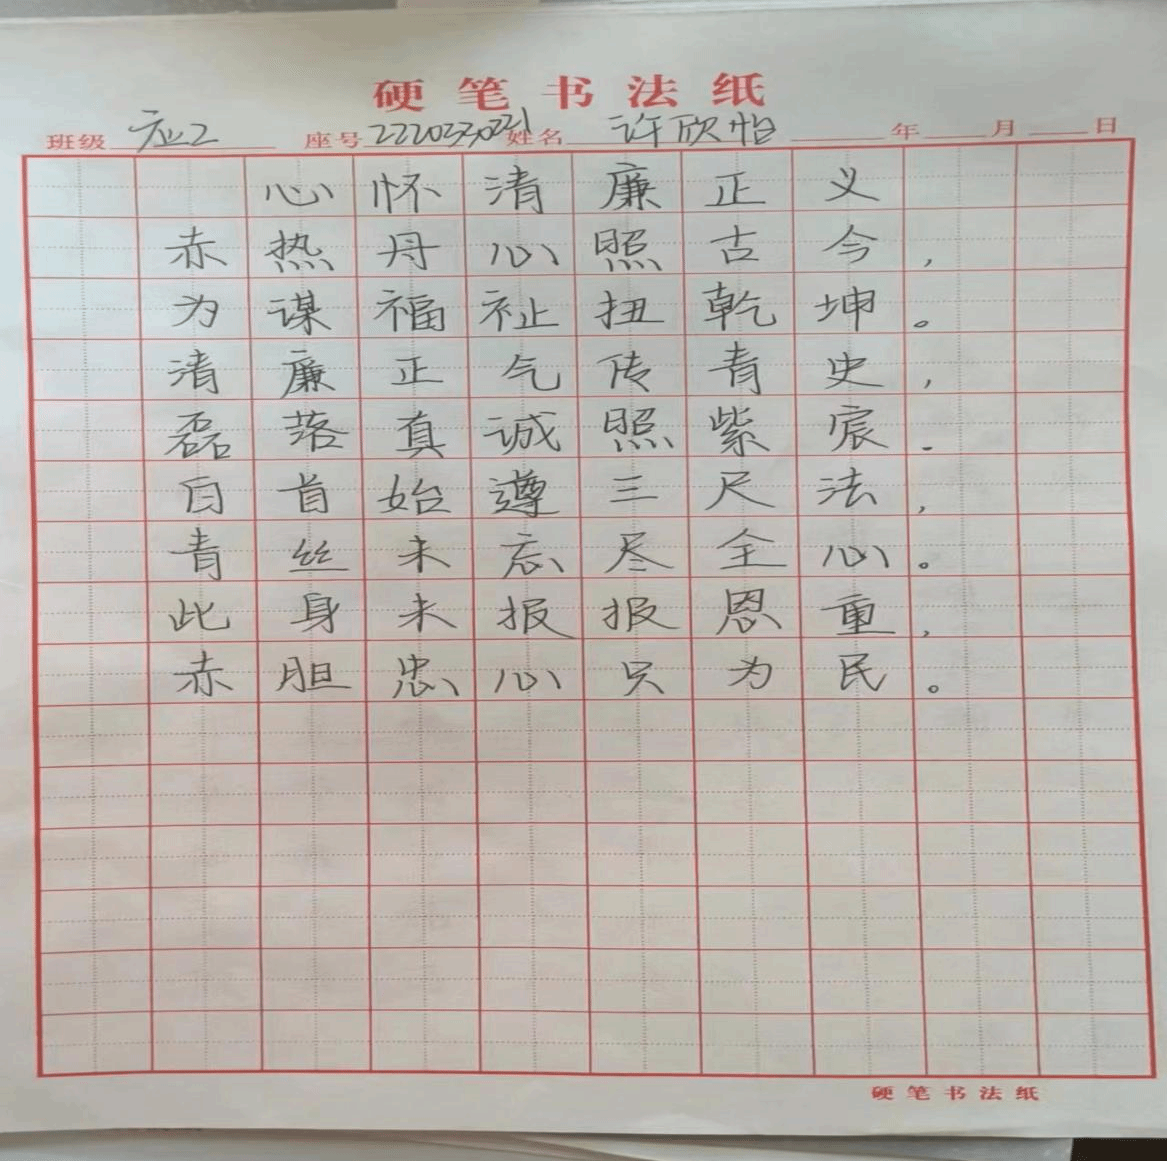 硬笔书法纸
班级 应心2 座号 2220230221 姓名 许欣怡 年 月 日
心怀清廉正义
赤热丹心照古今，
为谋福祉扭乾坤。
清廉正气传青史，
磊落真诚照紫宸.
白首始遵三尺法，
青丝未忘尽全心。
此身未报报恩重，
赤胆忠心只为民。
硬笔书法纸